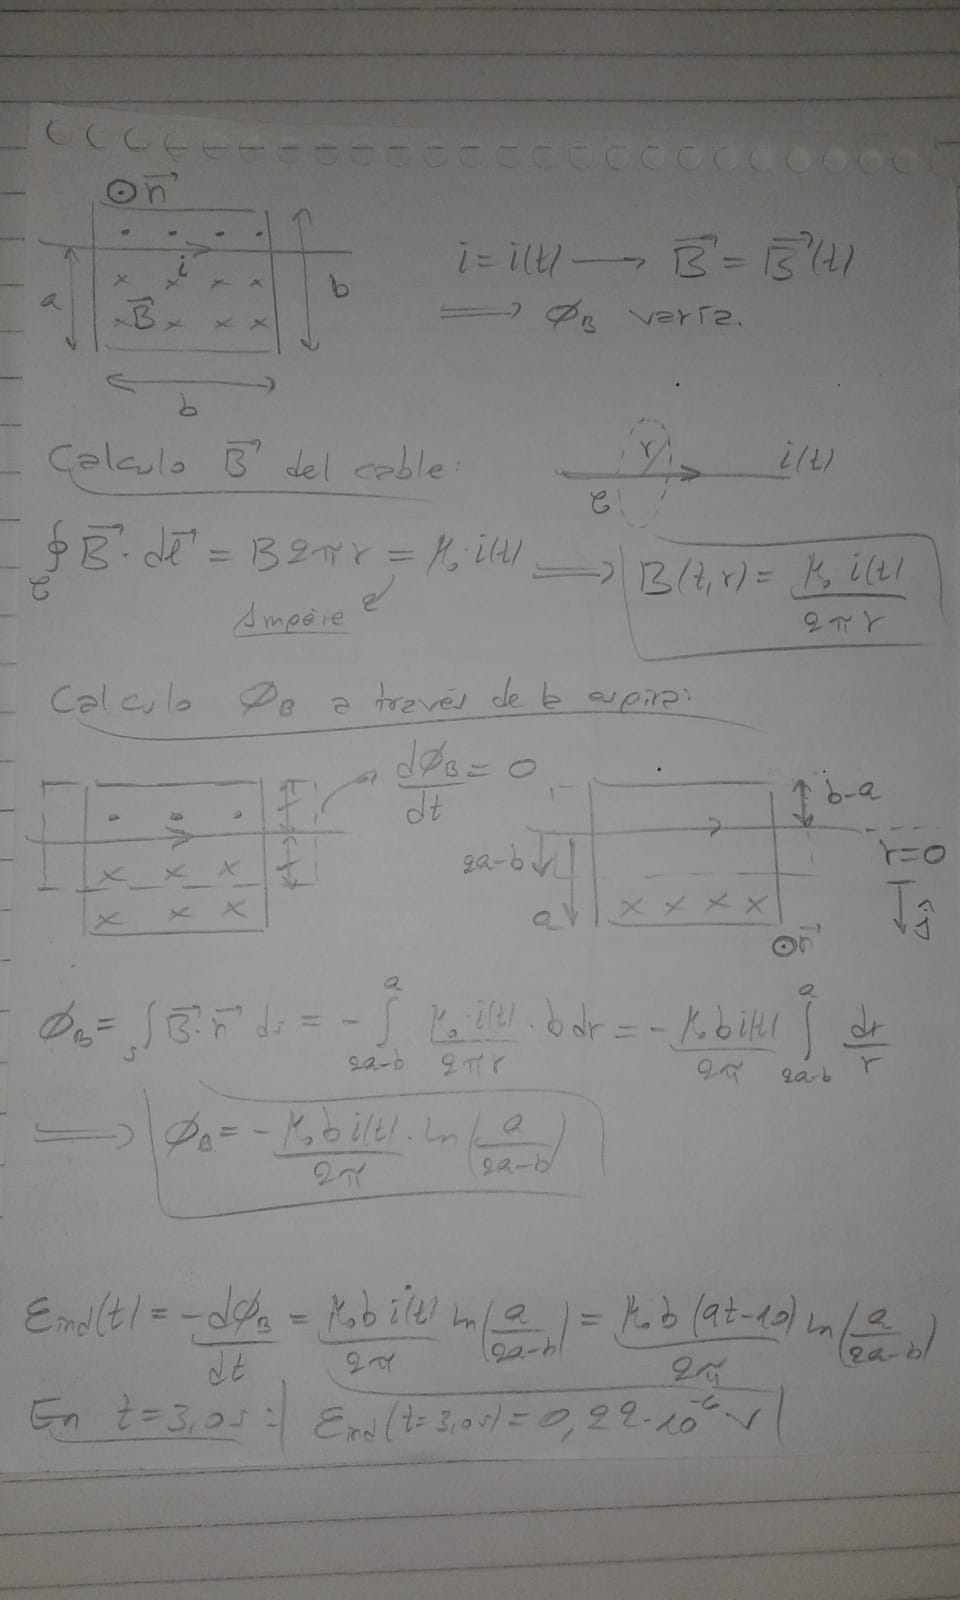 ⊙ n⃗
i
a
B⃗
b
b
i = i(t) ⟶ B⃗ = B⃗(t)
⟹ ∅B varía.
Calculo B⃗ del cable:
r
i(t)
C
∮C B⃗ · dl⃗ = B 2πr = μ₀ · i(t) ⟹ B(t,r) = μ₀ i(t) / 2πr
Ampère
Calculo ∅B a través de la espira:
d∅B/dt = 0
b-a
2a-b
a
r=0
ĵ
⊙ n⃗
∅B = ∫s B⃗ · n⃗ ds = - ∫_{2a-b}^{a} μ₀ · i(t) / 2πr · b dr = - μ₀ b i(t) / 2π ∫_{2a-b}^{a} dr/r
⟹ ∅B = - μ₀ b i(t) / 2π · Ln (a / 2a-b)
Ɛind(t) = - d∅B/dt = μ₀ b i̇(t) / 2π Ln (a / 2a-b) = μ₀ b (9t-10) / 2π Ln (a / 2a-b)
En t=3,0s: Ɛind (t=3,0s) = 0,22 · 10⁻⁶ V